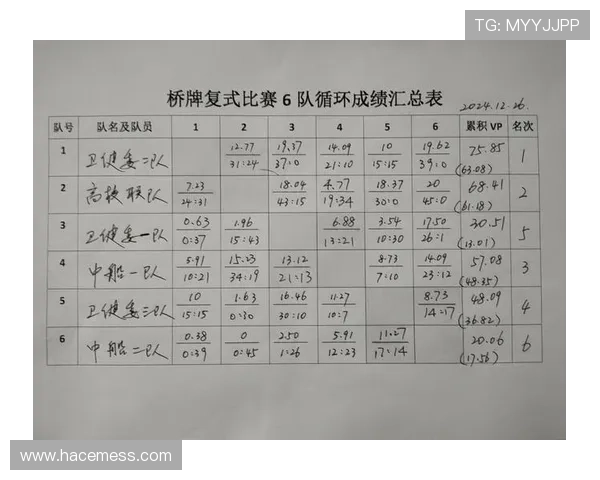 TG: MYYJJPP
桥牌复式比赛 6 队循环成绩汇总表
2024.12.26.
队号 队名及队员 1 2 3 4 5 6 累积 VP 名次
1 卫健委二队 12.77 19.37 14.09 10 19.62 75.85 1
31:24 37:0 21:10 15:15 39:0 (63.08)
2 高校联队 7.23 18.04 4.77 18.37 20 68.41 2
24:31 43:15 19:34 30:0 45:0 (61.18)
3 卫健委一队 0.63 1.96 6.88 3.54 17.50 30.51 5
0:37 15:43 13:21 10:30 26:1 (13.01)
4 中船一队 5.91 15.23 13.12 8.73 14.09 57.08 3
10:21 34:19 21:13 7:10 23:12 (48.35)
5 卫健委三队 10 1.63 16.46 11.27 8.73 48.09 4
15:15 0:30 30:10 10:7 14:17 (36.82)
6 中船二队 0.38 0 2.50 5.91 11.27 20.06 6
0:39 0:45 1:26 12:23 17:14 (17.56)
www.hacemess.com